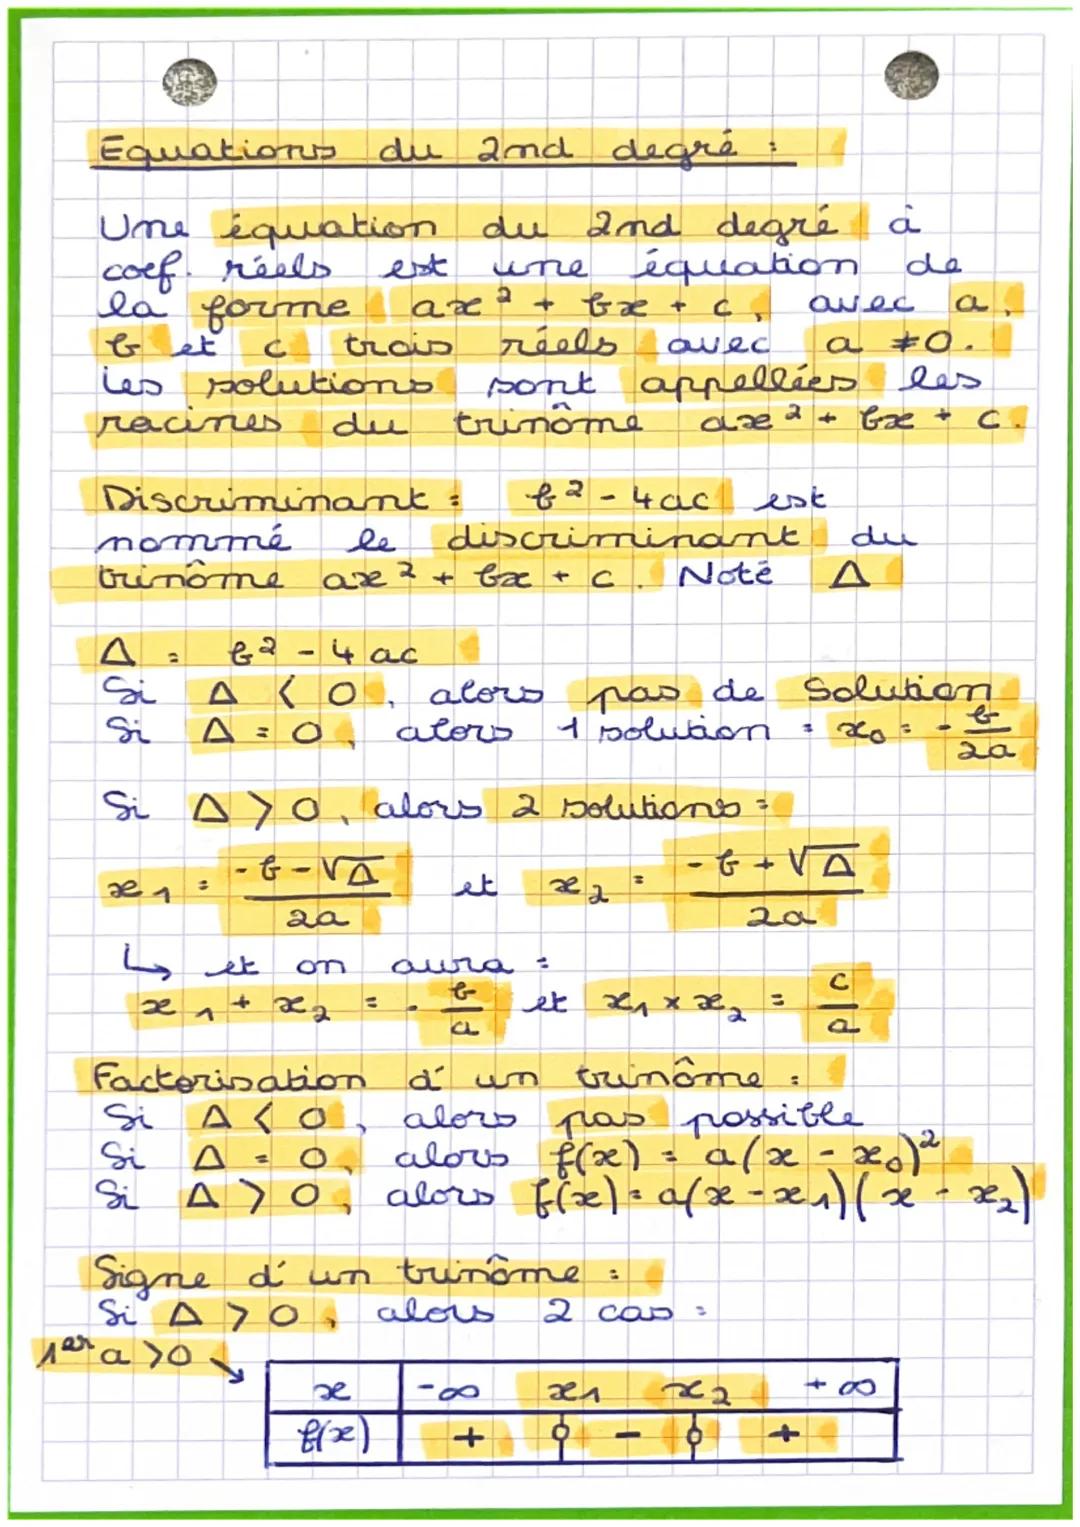 Equations du 2nd degré :
Une équation du 2nd degré à
coef. réels est une équation de
la forme ax² + bx + c, avec a,
b et c trois réels avec a ≠ 0.
Les solutions sont appellées les
racines du trinôme ax² + bx + c.
Discriminant : b² - 4ac est
nommé le discriminant du
trinôme ax² + bx + c. Noté Δ
Δ = b² - 4ac
Si Δ < 0, alors pas de solution
Si Δ = 0, alors 1 solution : x₀ = - b/2a
Si Δ > 0, alors 2 solutions :
x₁ = (-b-√Δ)/2a et x₂ = (-b+√Δ)/2a
↳ et on aura :
x₁ + x₂ = - b/a et x₁ × x₂ = c/a
Factorisation d'un trinôme :
Si Δ < 0, alors pas possible
Si Δ = 0, alors f(x) = a(x - x₀)²
Si Δ > 0, alors f(x) = a(x - x₁)(x - x₂)
Signe d'un trinôme :
Si Δ > 0, alors 2 cas :
1er a > 0 ↘
x -∞ x₁ x₂ +∞
f(x) + 0 - 0 +